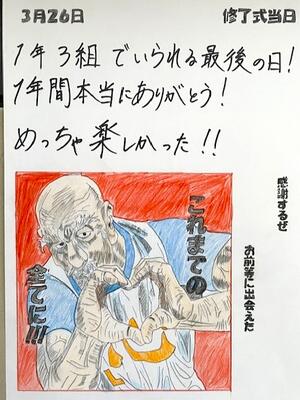 3月26日
修了式当日
1年3組 でいられる最後の日!
1年間本当にありがとう!
めっちゃ楽しかった!!
感謝するぜ
お前等に出会えた
これまでの
全てに!!!